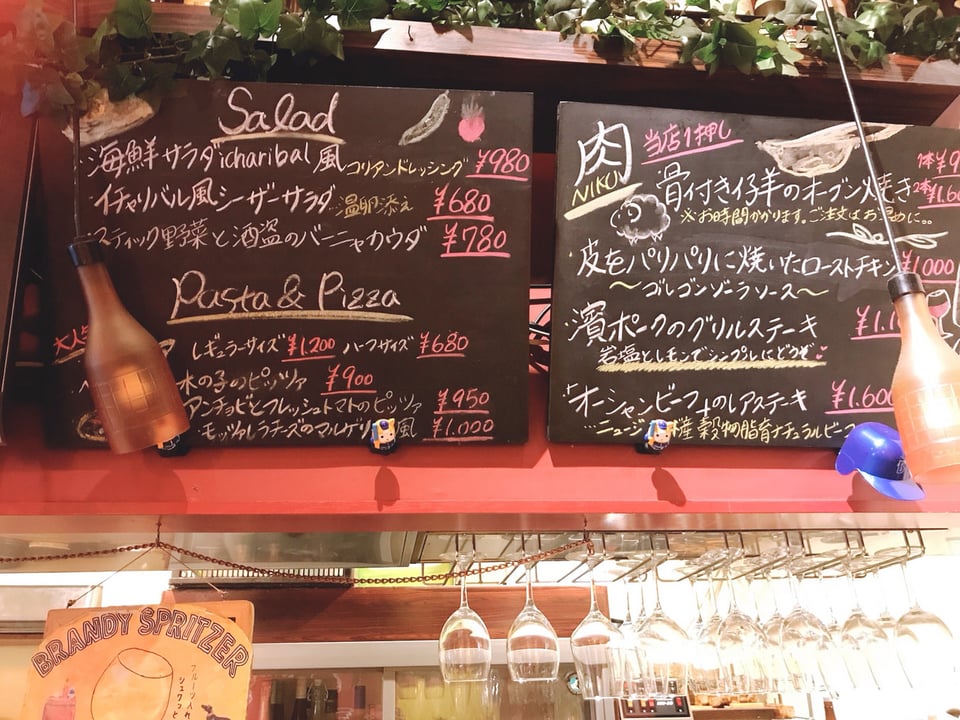 Salad
海鮮サラダicharibal風 コリアンドレッシング ¥980
イチャリバル風シーザーサラダ 温卵添え ¥680
スティック野菜と酒盗のバーニャカウダ ¥780
Pasta & Pizza
大人
レギュラーサイズ ¥1.200 ハーフサイズ ¥680
木の子のピッツァ ¥900
アンチョビとフレッシュトマトのピッツァ ¥950
モッツァレラチーズのマルゲリ ¥1.000
肉 当店1押し
NIKU
骨付き仔羊のオーブン焼き 1本¥9
2本¥1.60
※お時間かかります。ご注文はお早めに。。
皮をパリパリに焼いたローストチキン ¥1000
〜ゴルゴンゾーラソース〜
濱ポークのグリルステーキ ¥1.1
岩塩とレモンでシンプルにどうぞ
オーシャンビーフ のレアステーキ ¥1.600
ニュージ 産穀物肥育ナチュラルビーフ
BRANDY SPRITZER
フルーツ入れ
シュワっと